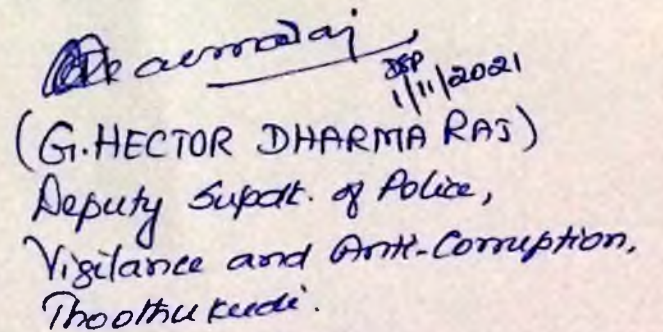 Dharmaraj
DSP
1/11/2021
(G. HECTOR DHARMA RAJ)
Deputy Supdt. of Police,
Vigilance and Anti-Corruption,
Thoothukudi.